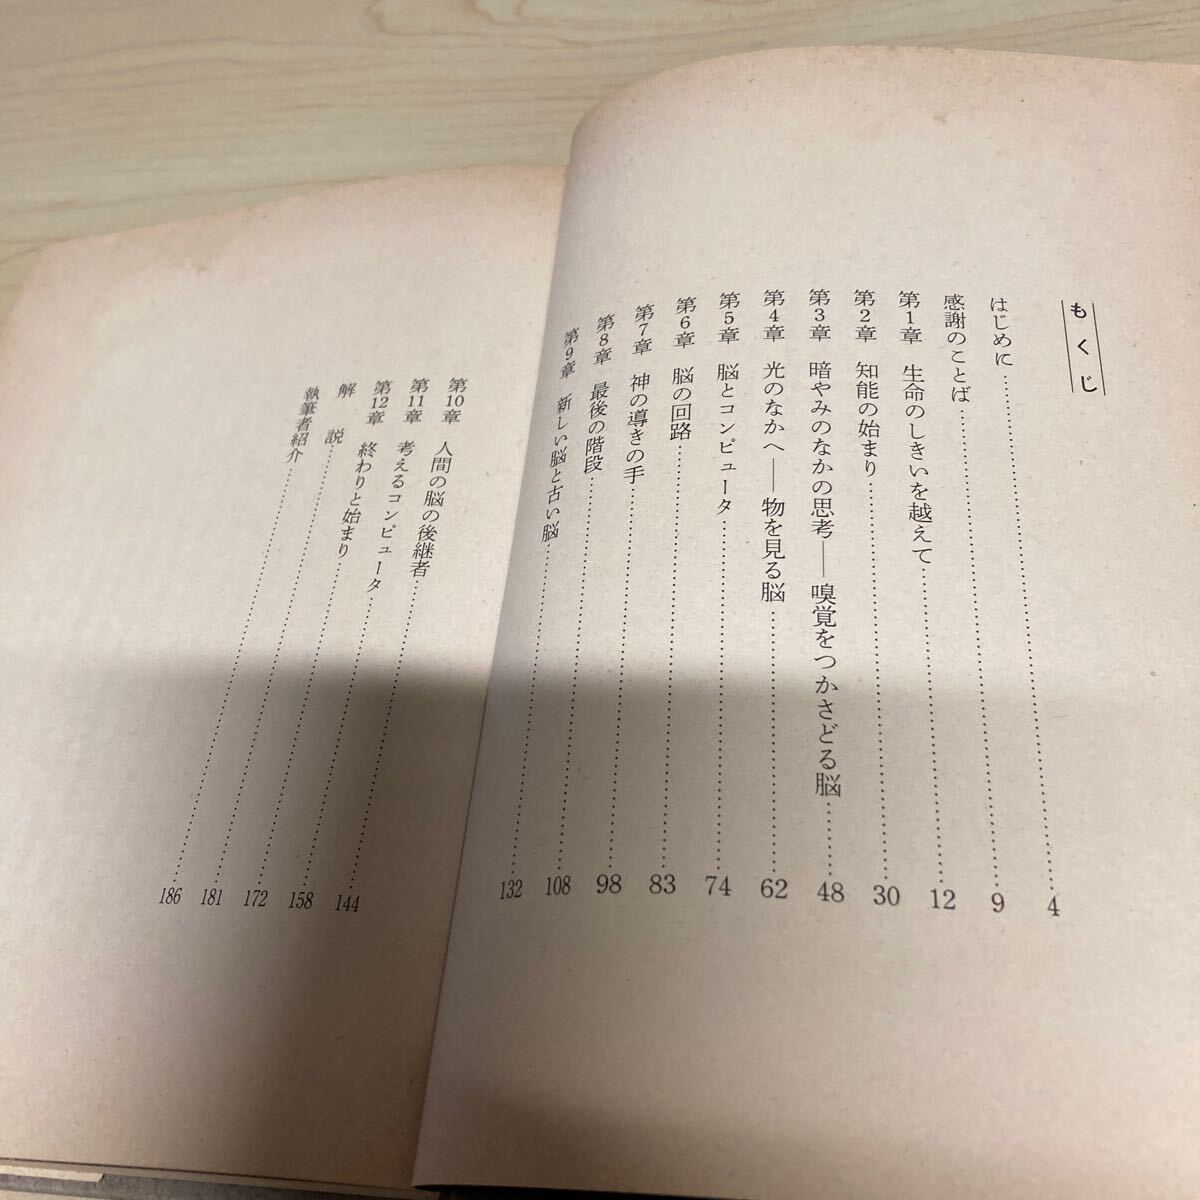 もくじ
はじめに……………………4
感謝のことば……………………9
第1章 生命のしきいを越えて……………………12
第2章 知能の始まり……………………30
第3章 暗やみのなかの思考――嗅覚をつかさどる脳……………………48
第4章 光のなかへ――物を見る脳……………………62
第5章 脳とコンピュータ……………………74
第6章 脳の回路……………………83
第7章 神の導きの手……………………98
第8章 最後の階段……………………108
第9章 新しい脳と古い脳……………………132
第10章 人間の脳の後継者……………………144
第11章 考えるコンピュータ……………………158
第12章 終わりと始まり……………………172
解 説……………………181
執筆者紹介……………………186